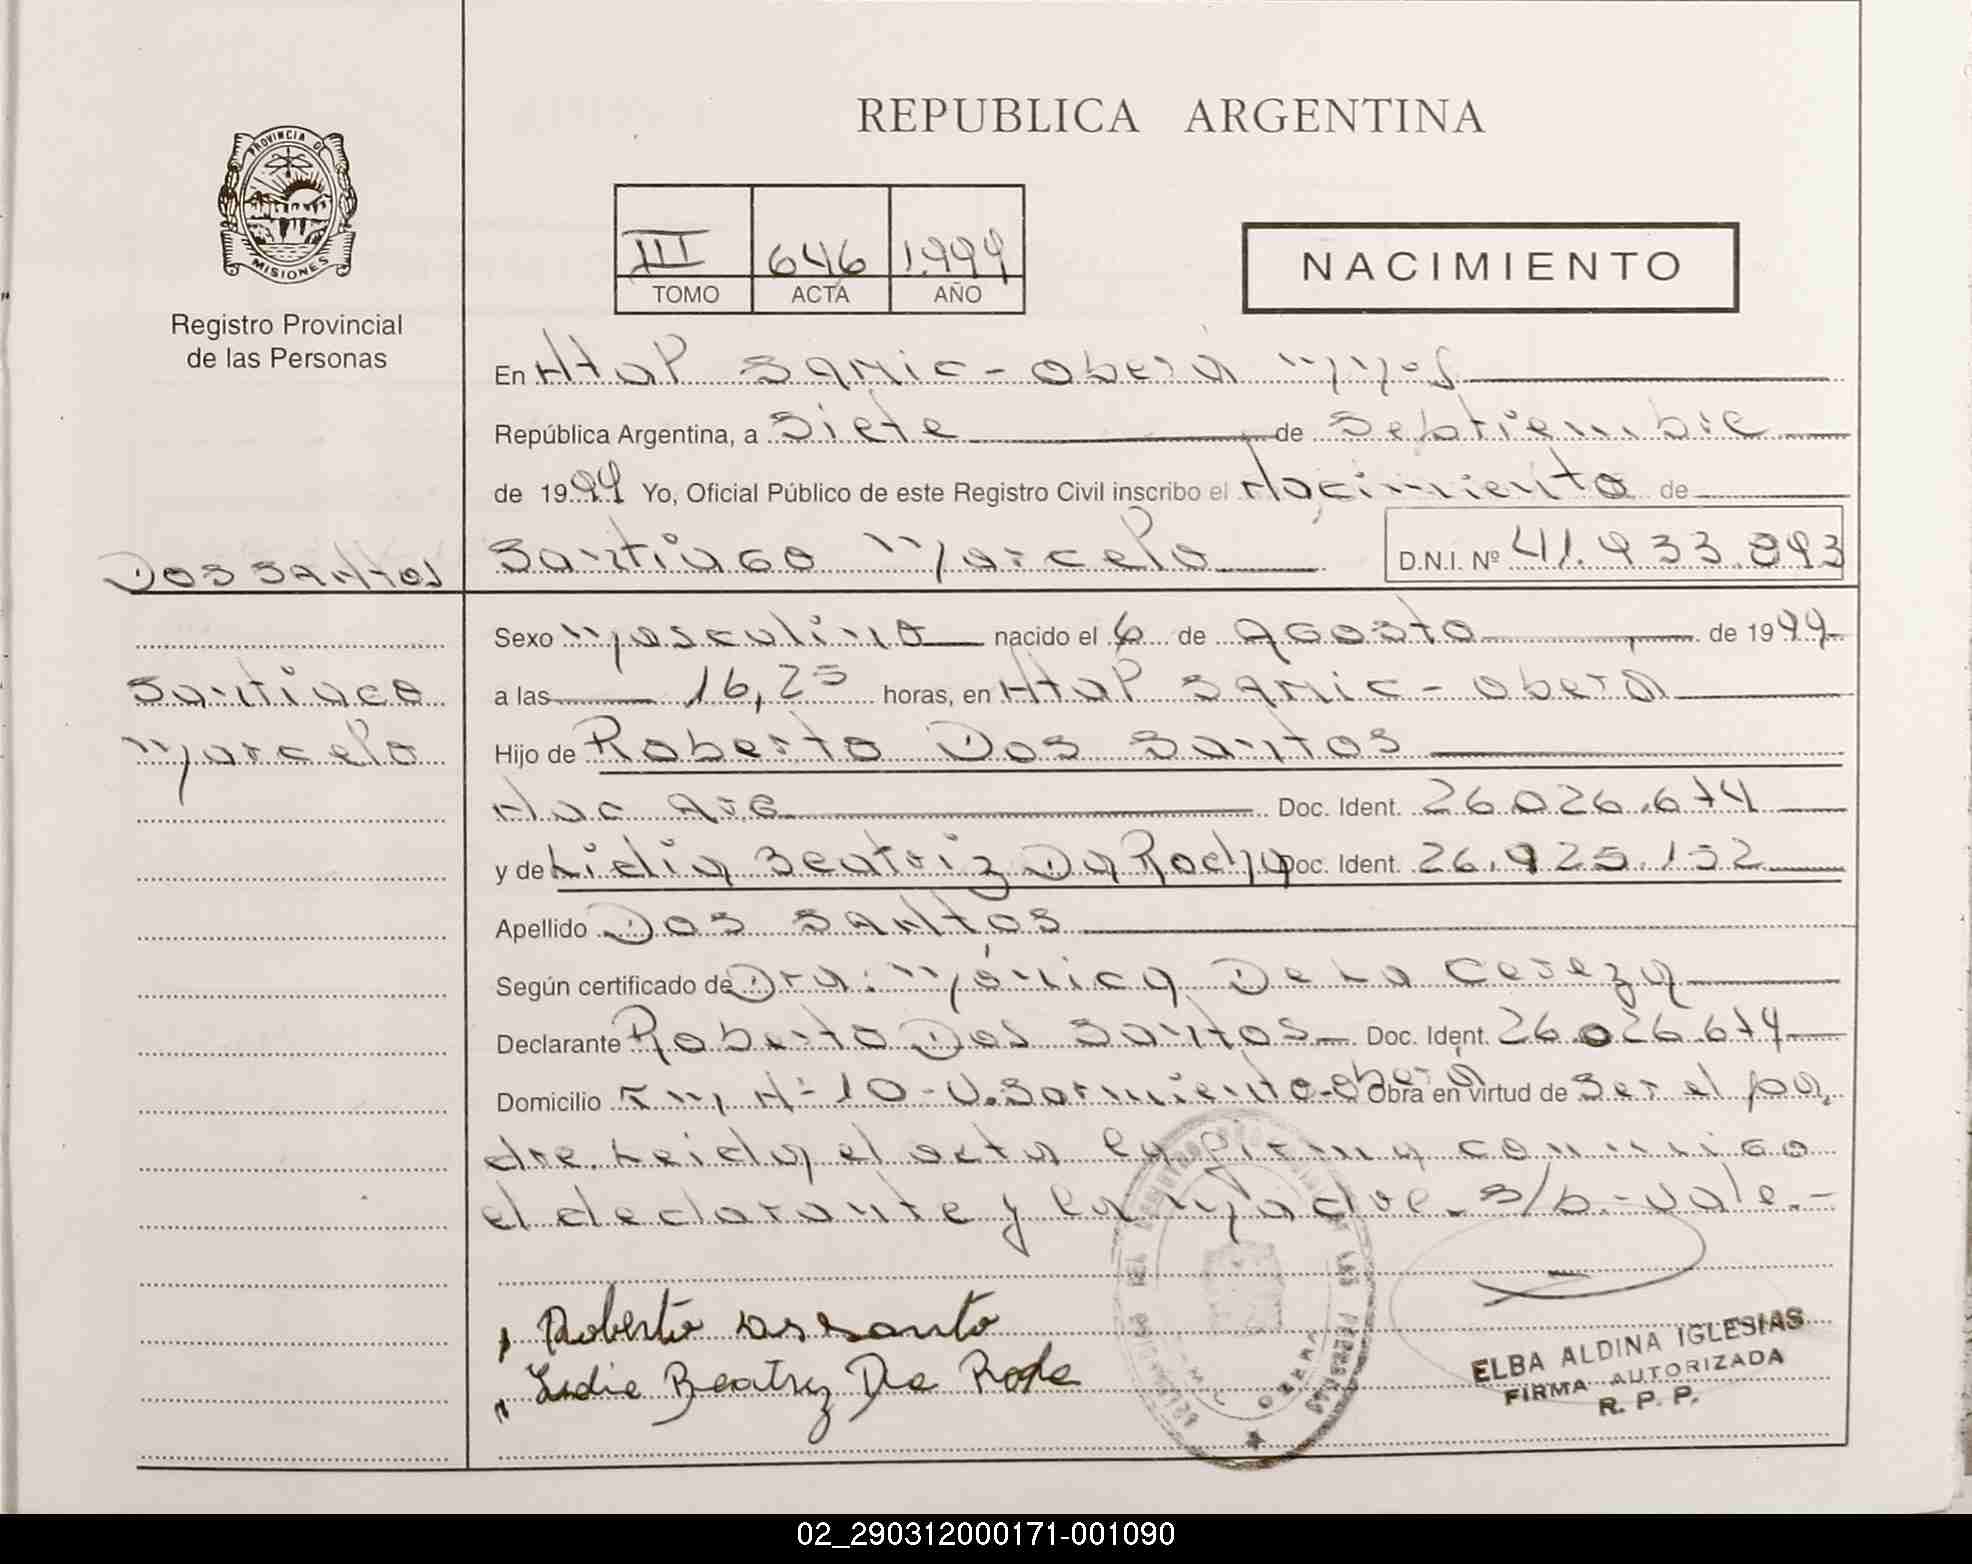 REPUBLICA ARGENTINA
PROVINCIA DE
MISIONES
Registro Provincial
de las Personas
III 646 1.999
TOMO ACTA AÑO
NACIMIENTO
En Htal SAMIC - Oberá Mnes
República Argentina, a Siete de Septiembre
de 1999 Yo, Oficial Público de este Registro Civil inscribo el Nacimiento de
Dos SANtos
Santiago Marcelo D.N.I. Nº 41.933.093
Santiago
Marcelo
Sexo Masculino nacido el 6 de Agosto de 1999
a las 16,25 horas, en Htal SAMIC - Oberá
Hijo de Roberto Dos Santos
Nac Arg Doc. Ident. 26.026.674
y de Lidia Beatriz Da Rocha Doc. Ident. 26.925.152
Apellido Dos SANtos
Según certificado de Dra. Mónica De La Cereza
Declarante Roberto Dos Santos Doc. Ident. 26.026.674
Domicilio Km Nº 10 - V. Sarmiento - Oberá Obra en virtud de Ser el pa
dre. Leida el acta la firma conmigo
el declarante y la Madre. S/b.- Vale.-
Roberto
Lidia Beatriz Da
ELBA ALDINA IGLESIAS
FIRMA AUTORIZADA
R. P. P.
02_290312000171-001090